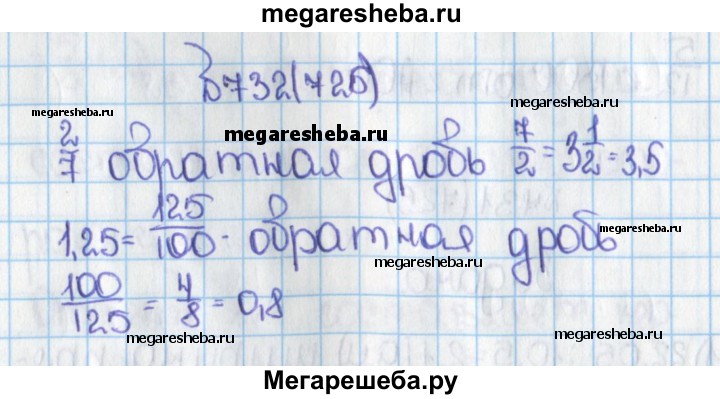 megaresheba.ru
732(726)
megaresheba.ru
megaresheba.ru
2/7 обратная дробь 7/2 = 3 1/2 = 3,5
megaresheba.ru
1,25 = 125/100 - обратная дробь
megaresheba.ru
megaresheba.ru
100/125 = 4/8 = 0,8
megaresheba.ru
megaresheba.ru
Мегарешеба.ру